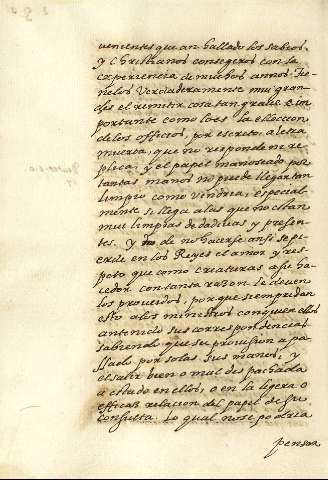 uenientes que an hallado los sabios
y Christianos consegeros con la
experiencia de muchos annos. Tie-
nelos Verdaderamente muy gran-
des el remitir cosa tan graue e im
portante como lo es la elleccion
de los officios, por escrito, a letra
muerta, que no responde ne re
plica, y el papel manoseado por
tantas manos no puede llegar tan
limpio como vendria, especial
mente si llega a las que no estan
mui limpias de dadiuas y presen-
tes. y de no hacerse ansi se pi-
erde en los Reyes el amor y res-
peto que como criaturas a su ha-
cedor con tanta razon le deuen
los proueidos, porque siempre dan
esto a los ministros con quien ellos
an tenido sus correspondencias
sabiendo que su prouision a pa
ssado por solas sus manos, y
el salir bien o mal despachada
a estado en ellos, o en la ligera o
efficas relacion del papel de su
consulta. Lo qual no se podria
pensar